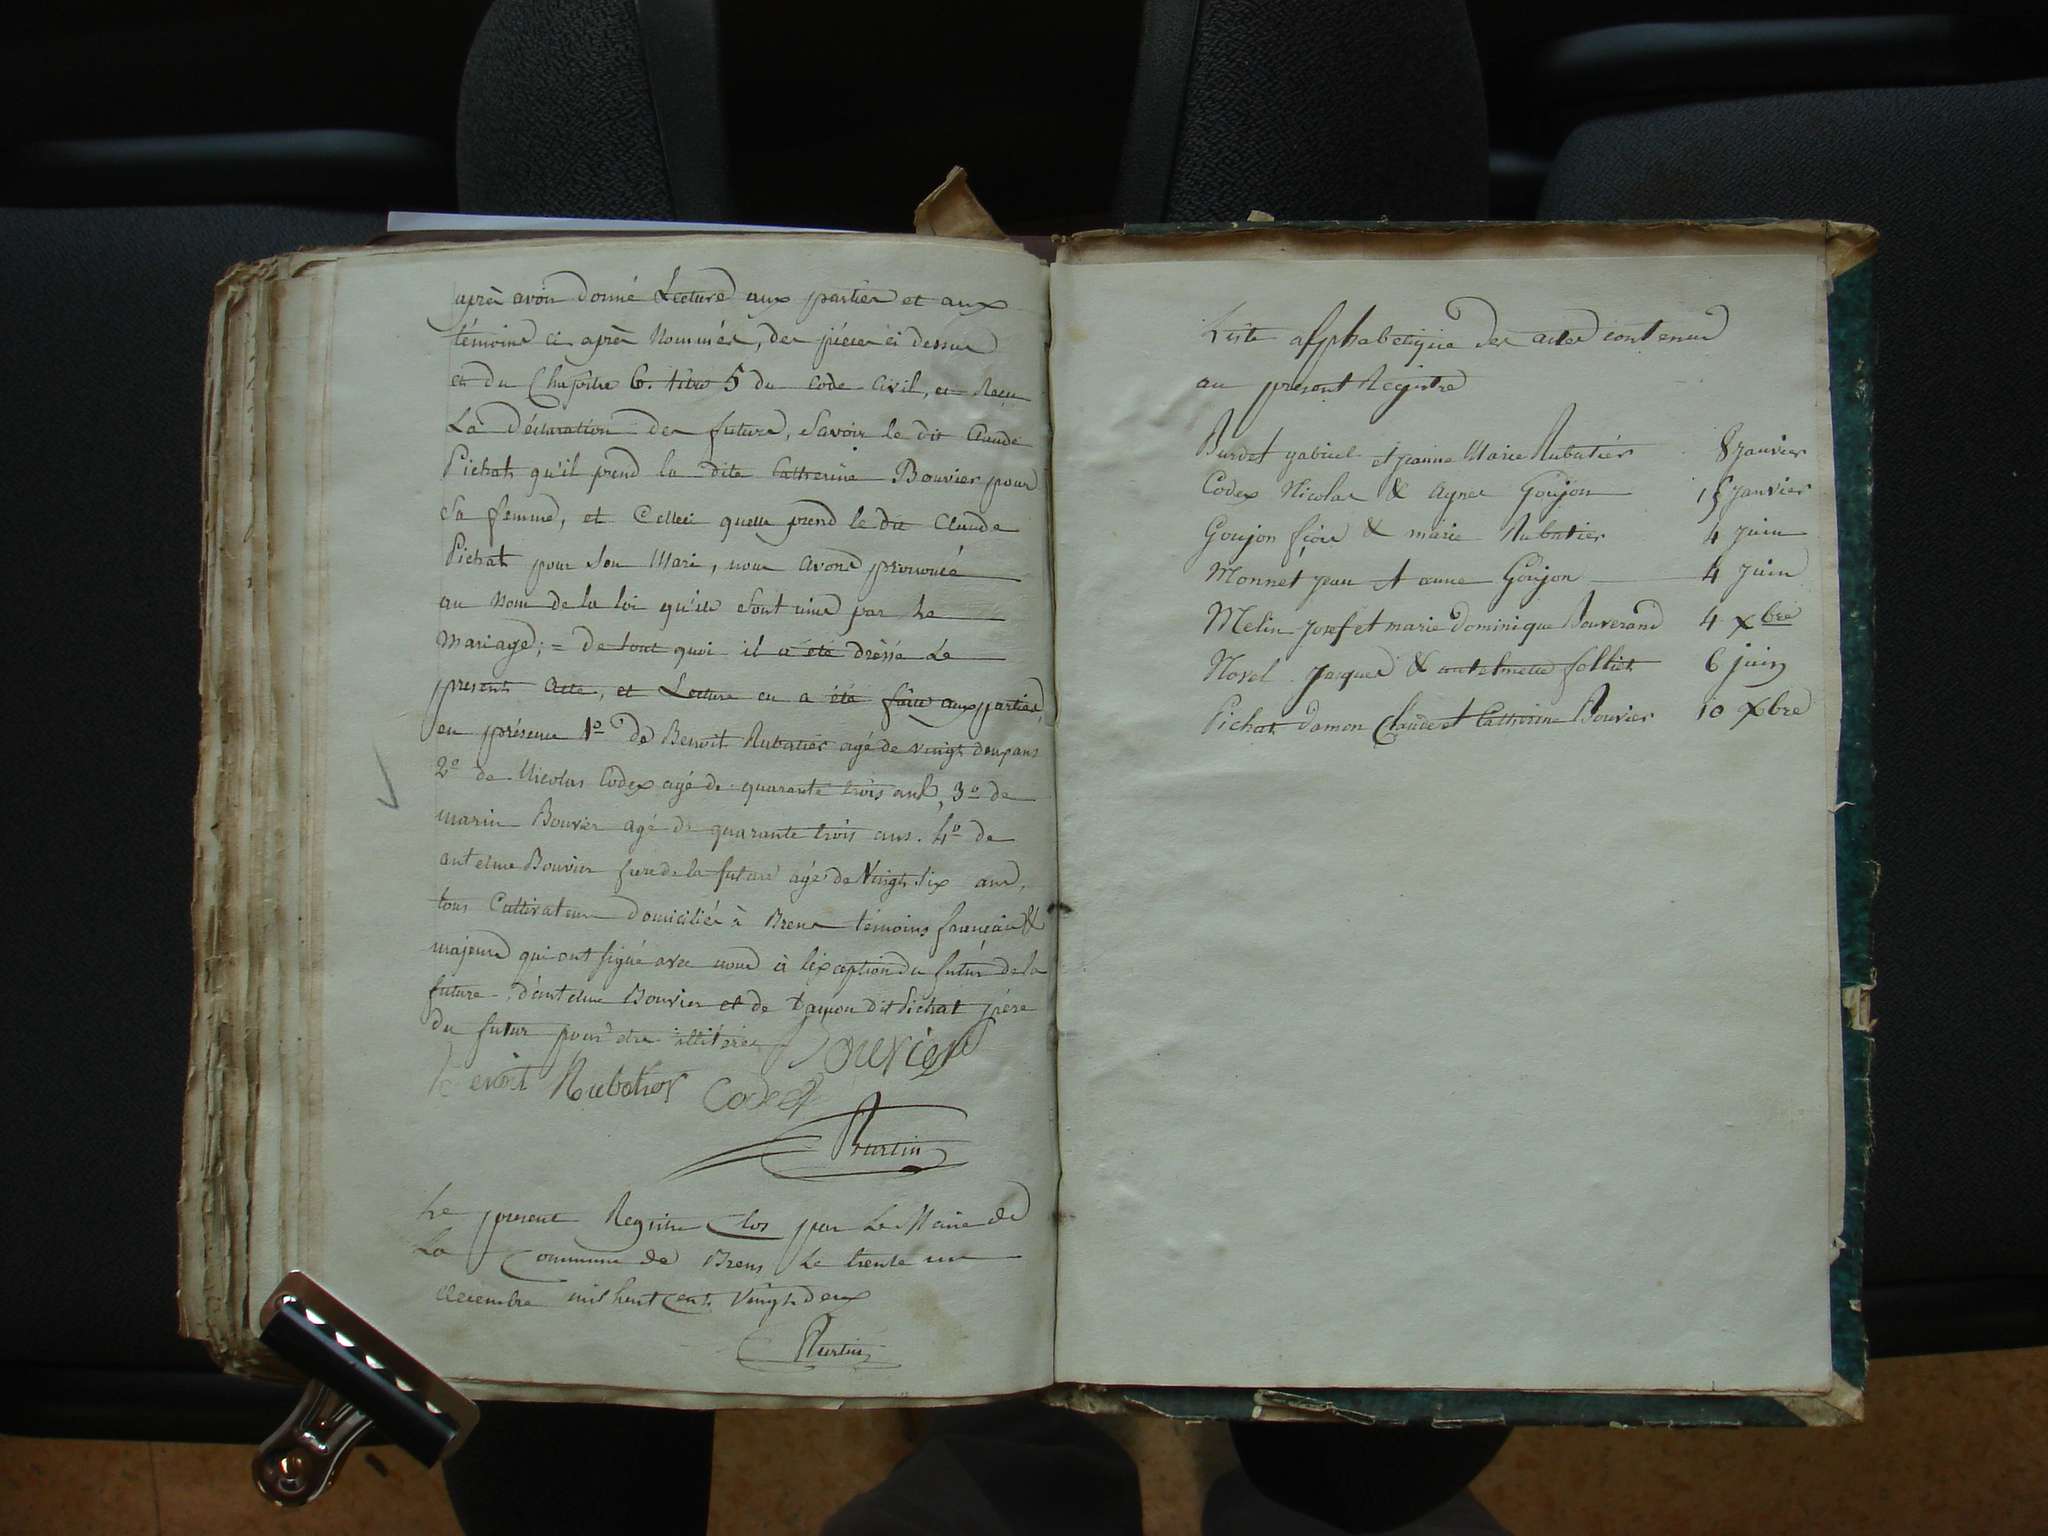 après avoir donné Lecture aux parties et aux
témoins ci après Nommés, des pièces ci dessus
et du Chapitre 6. titre 5 du Code Civil, et Reçu
La déclaration des futurs, Savoir le dit Claude
Pichat qu'il prend la dite Catherine Bouvier pour
Sa femme, et Celleci quelle prend le dit Claude
Pichat pour Son Mari, nous avons prononcé
au Nom de la loi qu'ils Sont unis par Le
Mariage; = De tout quoi il a été dressé Le
present Acte, et Lecture en a été faite aux parties,
en présence 1º de Benoit Rubatier agé de vingt deux ans
2º de Nicolas Codex agé de quarante trois ans, 3º de
marin Bouvier agé de quarante trois ans. 4º de
antelme Bouvier frere de la future agé de Vingt Six ans,
tous Cultivateurs domiciliés à Brens témoins francais &
majeurs qui ont signé avec nous à l'exception du futur de la
future, d'antelme Bouvier et de Damon dit Pichat père
du futur pour etre illitérés
Bouvier
Benoit Rubatier Codex
Burtin
Le present Registre Clos par Le Maire de
La Commune de Brens Le trente un
decembre mil huit cent Vingt deux
Burtin
Liste alphabetique des actes contenus
au present Registre
Burdet gabriel et jeanne Marie Rubatier 8 Janvier
Codex Nicolas & Agnes Goujon 15 Janvier
Goujon & marie Rubatier 4 Juin
Monnet Jean et anne Goujon 4 Juin
Melin Josef et marie Dominique Bouverand 4 Xbre
Morel Jacques & antelmette folliet 6 juin
Pichat Damon Claude et Catherine Bouvier 10 Xbre